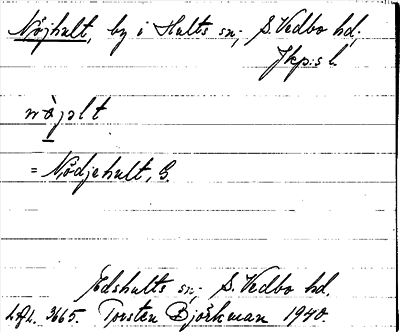 Nöjhult, by i Hults sn, S. Vedbo hd,
Jkp:s l.
nöjplt
= Nödjehult, G.
Edshults sn, S. Vedbo hd.
Lfl. 3665. Torsten Björkman 1940.